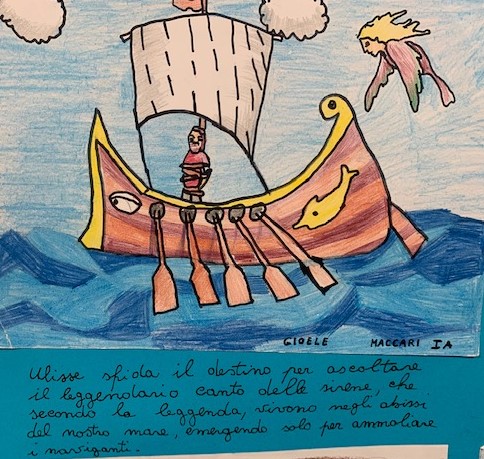 GIOELE MACCARI IA
Ulisse sfida il destino per ascoltare
il leggendario canto delle sirene, che
secondo la leggenda, vivono negli abissi
del nostro mare, emergendo solo per ammaliare
i naviganti.